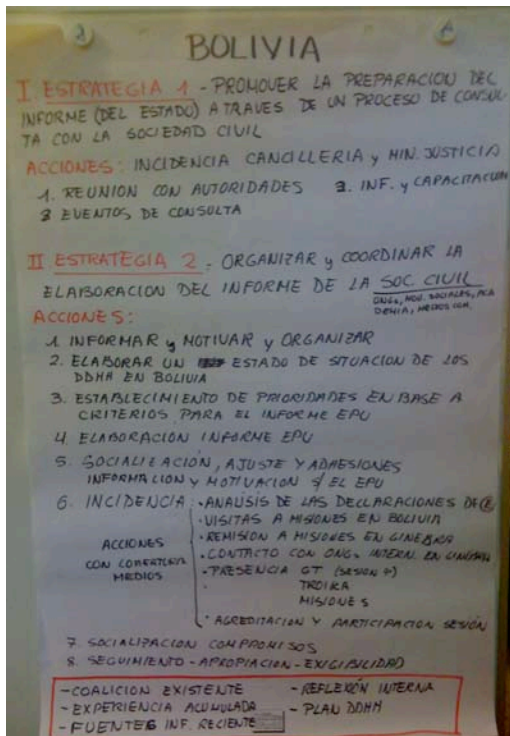 BOLIVIA
I. ESTRATEGIA 1 - PROMOVER LA PREPARACION DEL
INFORME (DEL ESTADO) A TRAVES DE UN PROCESO DE CONSUL
TA CON LA SOCIEDAD CIVIL
ACCIONES: INCIDENCIA CANCILLERIA y MIN. JUSTICIA
1. REUNION CON AUTORIDADES 2. INF. y CAPACITACION
3 EVENTOS DE CONSULTA
II ESTRATEGIA 2 - ORGANIZAR y COORDINAR LA
ELABORACION DEL INFORME DE LA SOC. CIVIL
ONGs, MOV. SOCIALES, ACA
DEMIA, MEDIOS COM.
ACCIONES:
1. INFORMAR y MOTIVAR y ORGANIZAR
2. ELABORAR UN ESTADO DE SITUACION DE LOS
DDHH EN BOLIVIA
3. ESTABLECIMIENTO DE PRIORIDADES EN BASE A
CRITERIOS PARA EL INFORME EPU
4. ELABORACION INFORME EPU
5. SOCIALIZACION, AJUSTE Y ADHESIONES
INFORMACION y MOTIVACION S/ EL EPU
6. INCIDENCIA: • ANALISIS DE LAS DECLARACIONES DE
• VISITAS A MISIONES EN BOLIVIA
• REMISION A MISIONES EN GINEBRA
• CONTACTO CON ONGs INTERN. EN GINEBRA
• PRESENCIA GT (SESION 4)
TROIKA
MISIONES
• ACREDITACION Y PARTICIPACION SESIÓN
ACCIONES
CON COBERTURA
MEDIOS
7. SOCIALIZACION COMPROMISOS
8. SEGUIMIENTO - APROPIACION - EXIGIBILIDAD
- COALICION EXISTENTE - REFLEXIÓN INTERNA
- EXPERIENCIA ACUMULADA - PLAN DDHH
- FUENTES INF. RECIENTE